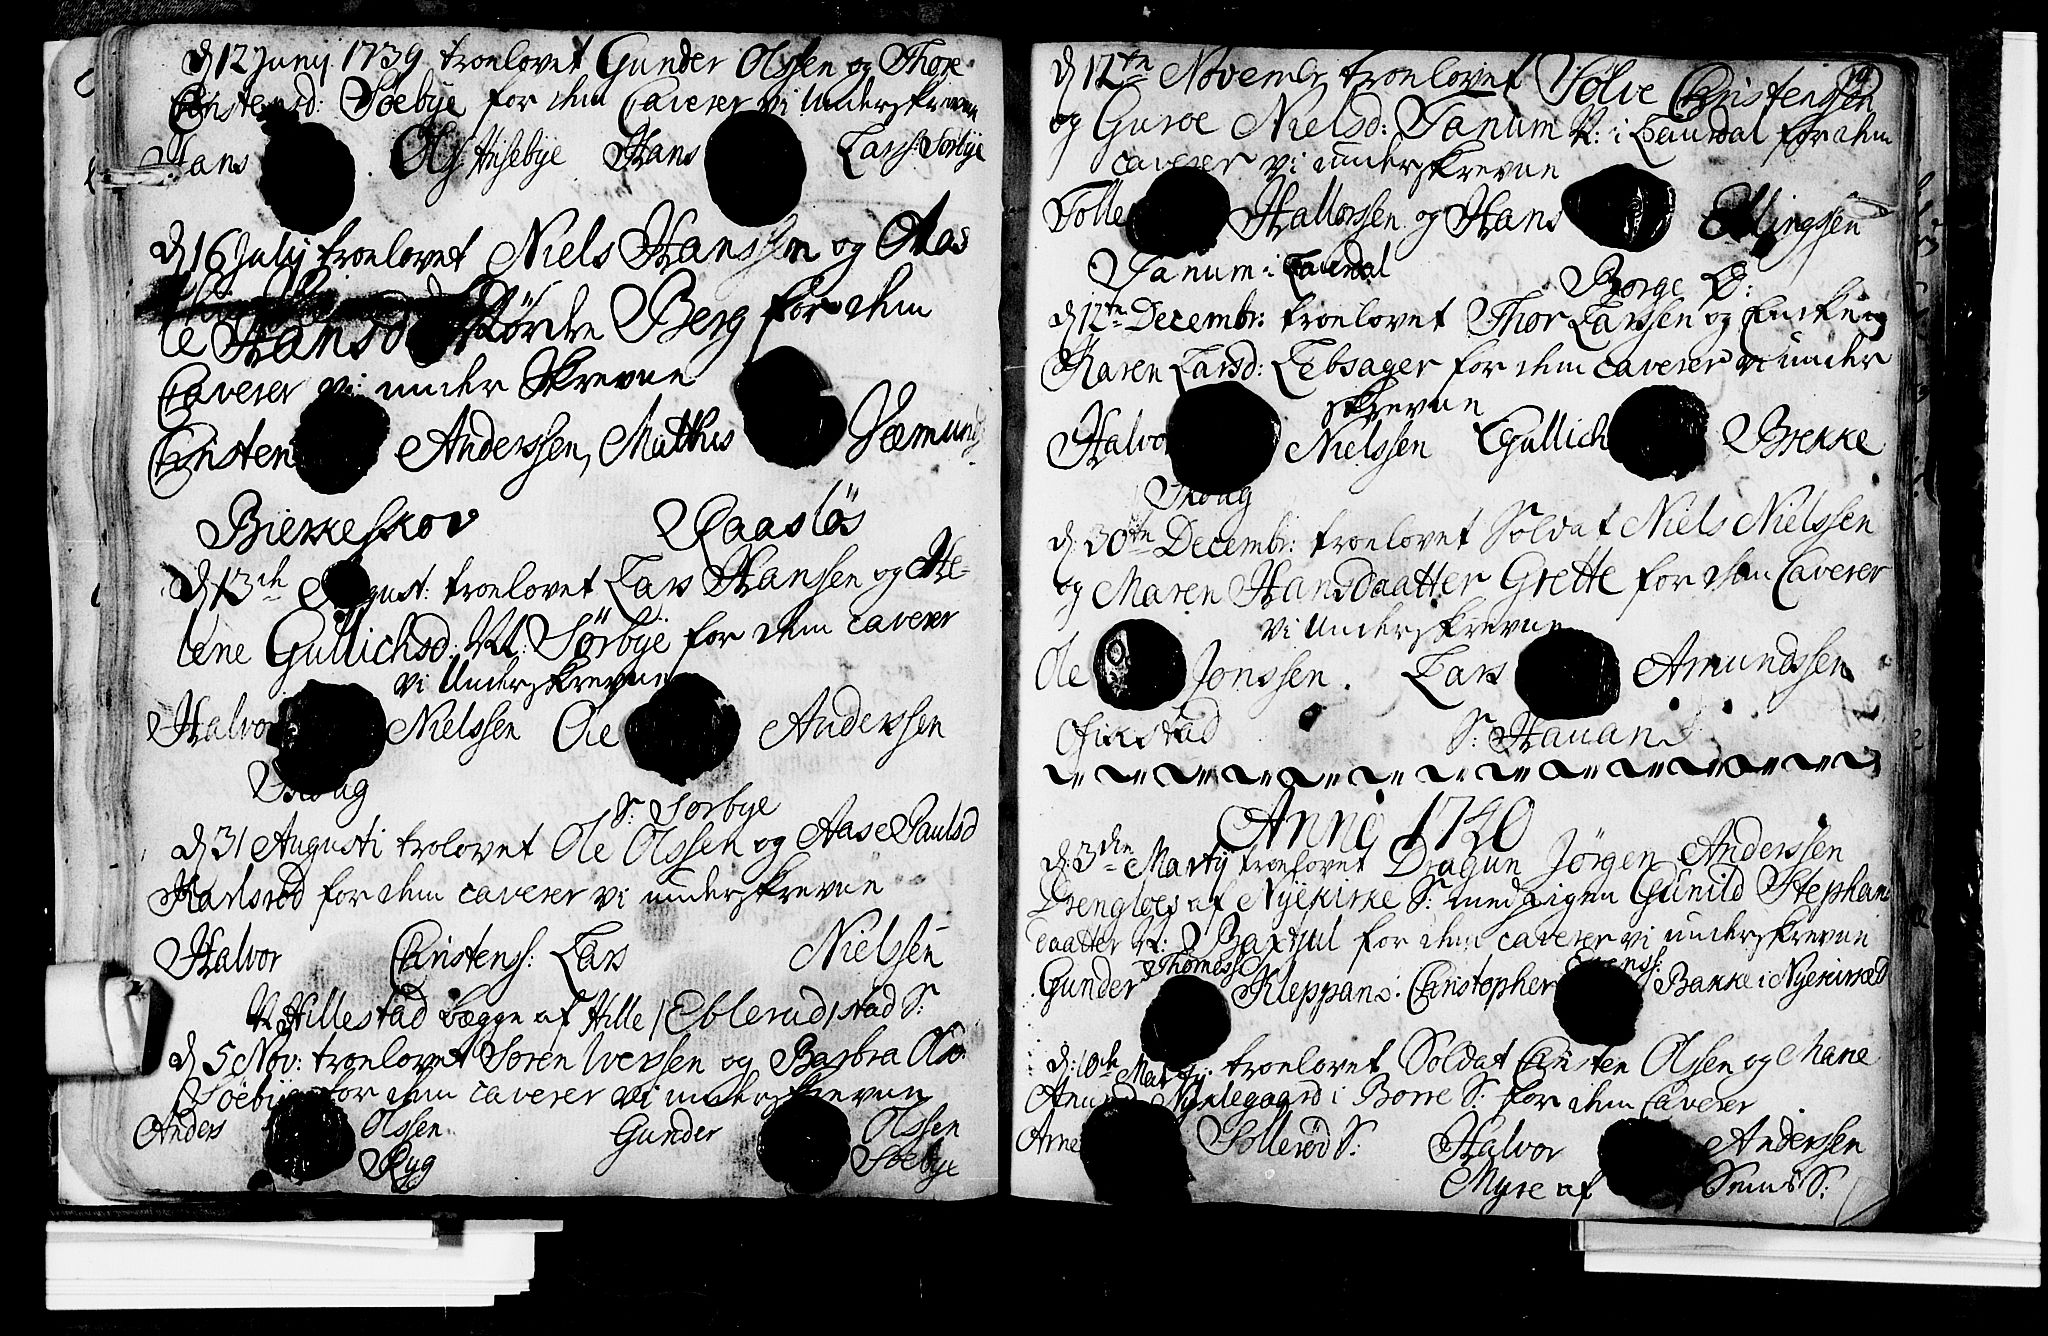 d 12 Junij 1739 troelovet Gunder Olssen og Thore
Christensd: Søebye for dem Caverer vi Underskrevne
Hans Ols: Husebye Hans Larss: Sørbye
d 16 Julij troelovet Niels Hanssen og Maa
le Hansd Nørdre Berg for dem
Caverer vi under Skrevne
Christen Anderssen, Mathis Sæmunds
Bierkeskov Raasløs
d 13ch August: troelovet Lars Hanssen og He-
lene Gullichsd: N: Sørbye for dem caverer
vi Underskrevne
Halvor Nielssen Ole Anderssen
Skoug
S: Sørbye
d 31 Augusti trolovet Ole Olssen og Aase Paulsd
Karlsrød for dem caverer vi underskrevne
Halvor Christenss: Lars Nielssen
N Hillestad begge af Hille / Eblerud / stad S:
d 5 Nov: troelovet Søren Iverssen og Barbra Ols:
Søebye for dem caverer vi underskrevne
Anders Olssen Gunder Olssen
Ryg Søebye
d 12te Novembr troelovet Sølve Christenssen
og Guroe Nielsd: Tanum N: i Laurdal for dem
caverer vi underskrevne
Tolle Hallorssen og Hans Ellingssen
Tanum i Laurdal Borge
d 12te Decembr: troelovet Thor Larssen og Encken
Karen Larsd: Lebsager for dem caverer vi under
skrevne
Halvor Nielssen Gullich Brekke
Skoug
d. 30te Decembr: troelovet Soldat Niels Nielssen
og Maren Hansdaatter Grette for dem Caverer
vi underskrevne
Ole Jonssen. Lars Amundssen
Fikstad S: Hauan
Anno 1740
d: 3die Martij troelovet Dragun Jørgen Anderssen
af Nyekirke S: med Pigen Gunild Stephans
daatter N: for dem caverer vi underskrevne
Gunder Thomess: Kleppan: Christopher Bakke i Nyekirke
d: 10de Martij troelovet Soldat Christen Olssen og Mane
Nyelegaard i Borre S: for dem Caverer
Arne Sollerød S: Halvor Anderssen
Myre af Sems S: